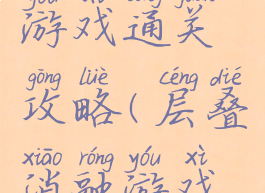 游戏通关
gōng lüè céng dié
攻略(层叠
xiāo róng yóu xì
消融游戏